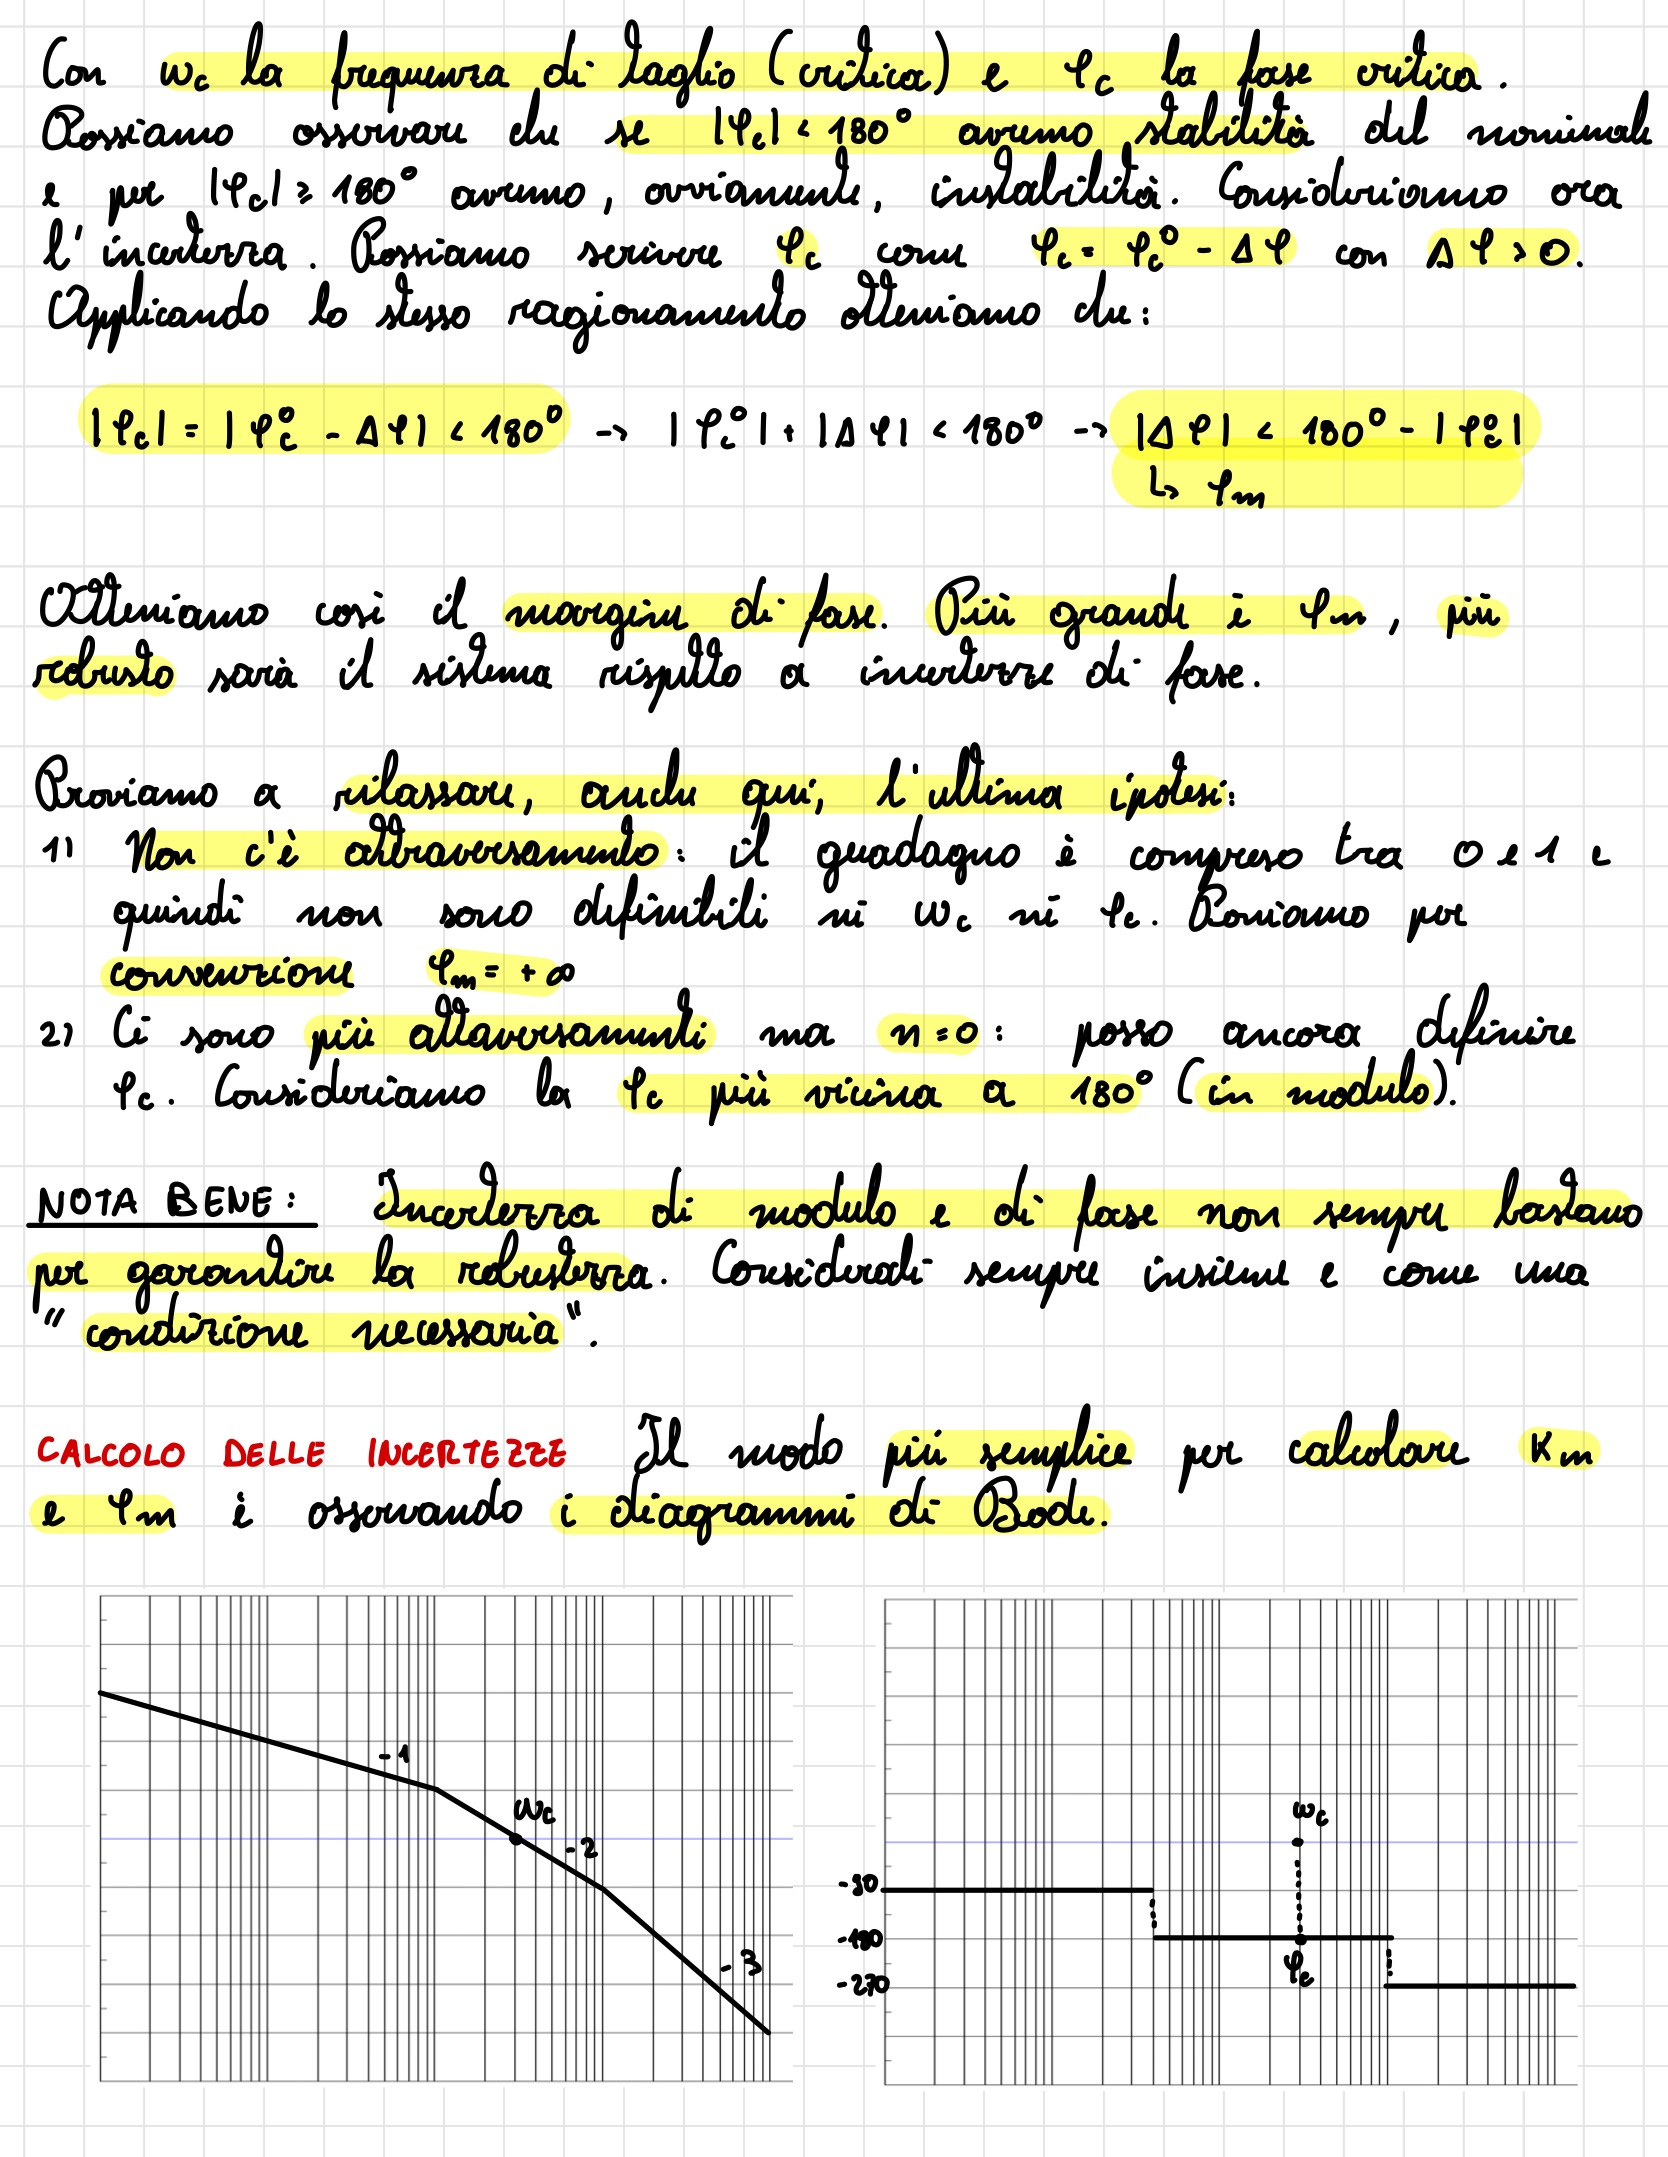 Con ωc la frequenza di taglio (critica) e φc la fase critica.
Possiamo osservare che se |φc| < 180° avremo stabilità del nominale
e per |φc| ≥ 180° avremo, ovviamente, instabilità. Consideriamo ora
l'incertezza. Possiamo scrivere φc come φc = φc° - Δφ con Δφ > 0.
Applicando lo stesso ragionamento otteniamo che:
|φc| = |φc° - Δφ| < 180° -> |φc°| + |Δφ| < 180° -> |Δφ| < 180° - |φc°|
↳ φm
Otteniamo così il margine di fase. Più grande è φm, più
robusto sarà il sistema rispetto a incertezze di fase.
Proviamo a rilassare, anche qui, l'ultima ipotesi:
1) Non c'è attraversamento: il guadagno è compreso tra 0 e 1 e
quindi non sono definibili nè ωc nè φc. Poniamo per
convenzione φm = +∞
2) Ci sono più attaversamenti ma n=0: posso ancora definire
φc. Consideriamo la φc più vicina a 180° (in modulo).
NOTA BENE: Incertezza di modulo e di fase non sempre bastano
per garantire la robustezza. Considerati sempre insieme e come una
"condizione necessaria".
CALCOLO DELLE INCERTEZZE Il modo più semplice per calcolare Km
e φm è osservando i diagrammi di Bode.
-1
ωc
-2
-3
ωc
-90
-180
φc
-270